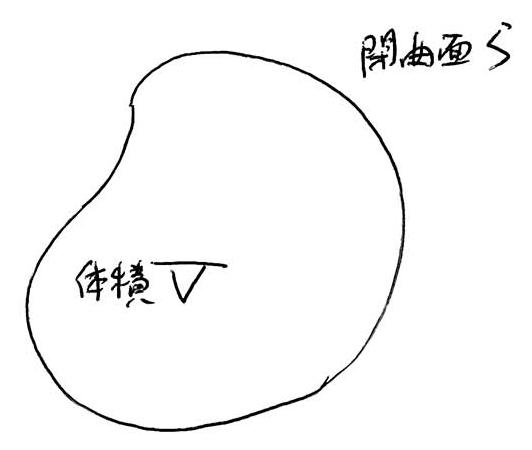 閉曲面 S
体積 V